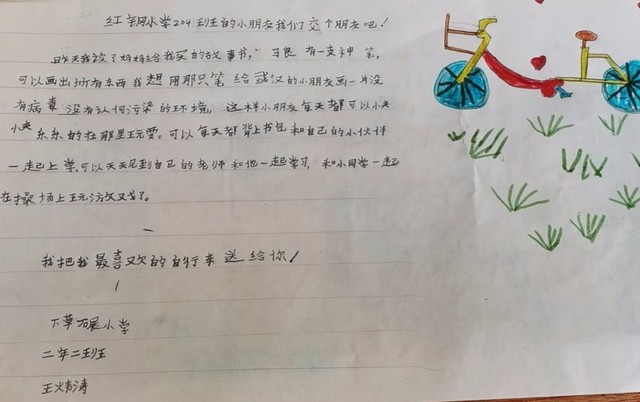 红钢小学204班的小朋友我们交个朋友吧!
昨天我读了妈妈给我买的故事书,马良有一支神笔,
可以画出所有东西我想用那只笔给武汉的小朋友画一片没
有病毒没有认何污染的环境,这样小朋友每天都可以快快
乐乐的在那里玩耍。可以每天都背上书包和自己的小伙伴
一起上学,可以天天见到自己的老师和他一起学习,和小同学一起
在操场上玩游戏了。
我把我最喜欢的自行车送给你!
下莘碾小学
二年二班
王